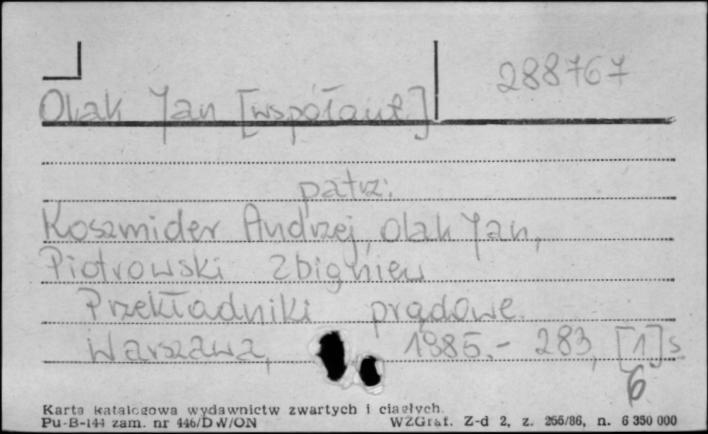 288767
Olak Jan [współaut.]
patrz:
Koszmider Andrzej, Olak Jan,
Piotrowski Zbigniew
Przekładniki prądowe.
Warszawa, 1985.- 283, [1] s
6
Karta katalogowa wydawnictw zwartych i ciągłych.
Pu-B-144 zam. nr 446/DW/ON WZGraf. Z-d 2, z. 255/86, n. 6 350 000